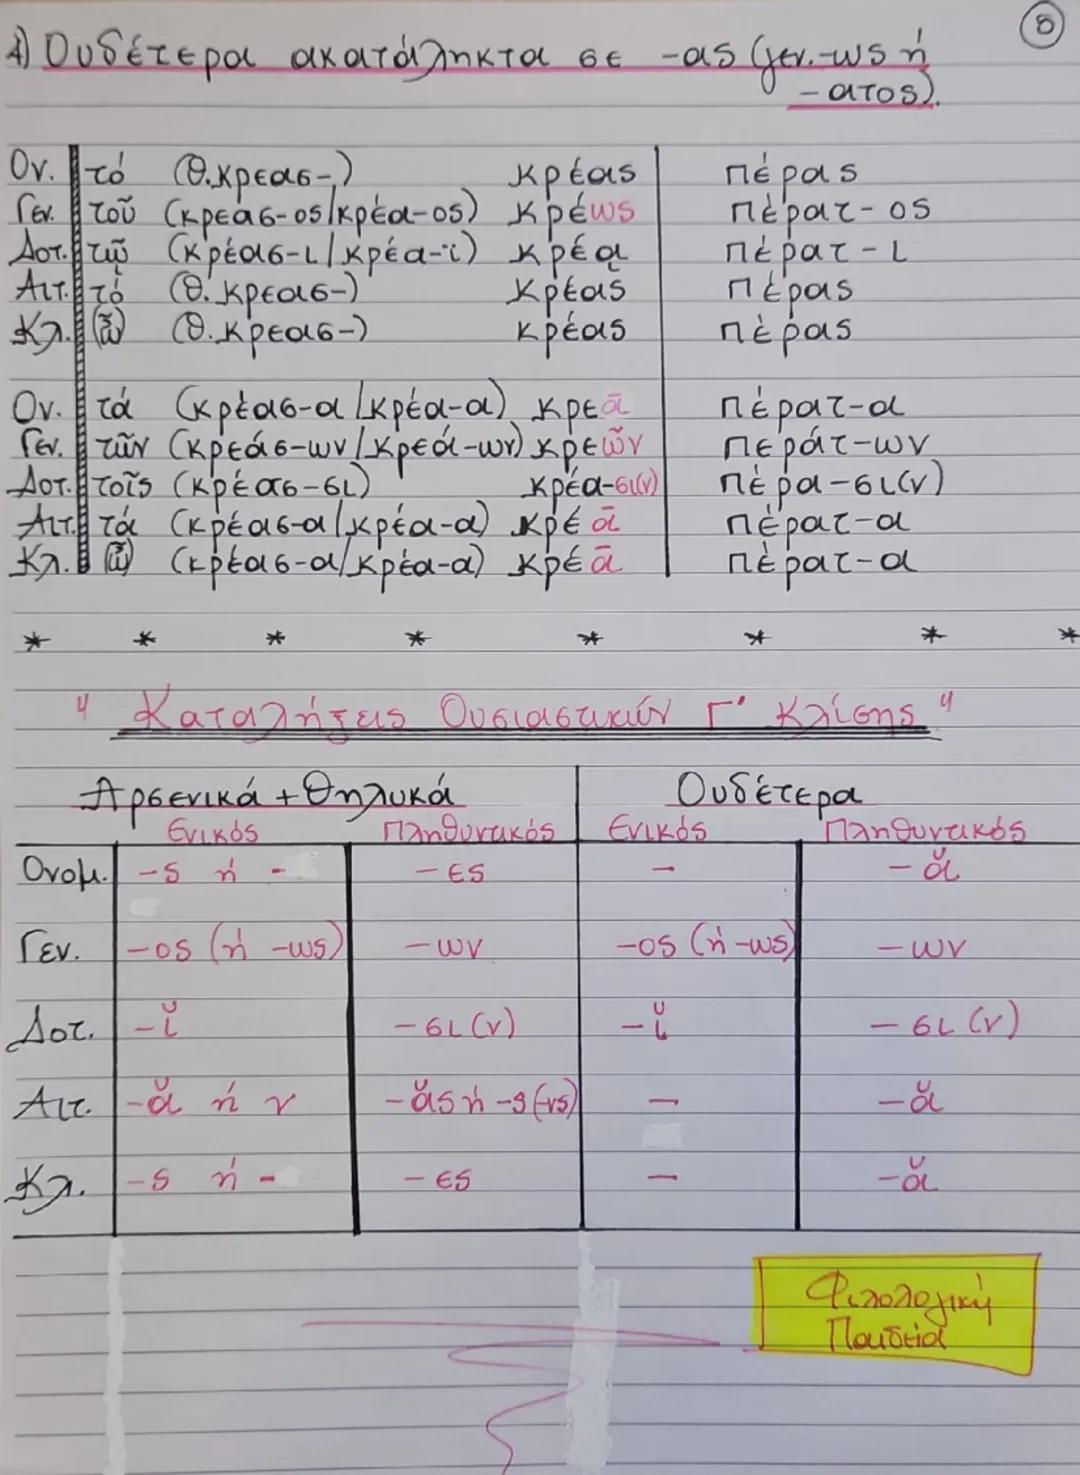 8
4) Ουδέτερα ακατάληκτα σε -ας (γεν.-ως ή
-ατος).
Ον. τό (θ.κρεασ-) κρέας πέρας
Γεν. τοῦ (κρεασ-ος/κρέα-ος) κρέως πέρατ-ος
Δοτ. τῷ (κρέασ-ι/κρέα-ϊ) κρέᾳ πέρατ-ι
Αιτ. τό (θ. κρεασ-) κρέας πέρας
Κλ. (ὦ) (θ.κρεασ-) κρέας πέρας
Ον. τά (κρέασ-α/κρέα-α) κρέᾱ πέρατ-α
Γεν. τῶν (κρεάσ-ων/κρεά-ων) κρεῶν περάτ-ων
Δοτ. τοῖς (κρέασ-σι) κρέα-σι(ν) πέρα-σι(ν)
Αιτ. τά (κρέασ-α/κρέα-α) κρέᾱ πέρατ-α
Κλ. (ὦ) (κρέασ-α/κρέα-α) κρέᾱ πέρατ-α
* * * * * * * *
" Καταλήξεις Ουσιαστικών Γ' Κλίσης "
Αρσενικά + Θηλυκά Ουδέτερα
Ενικός Πληθυντικός Ενικός Πληθυντικός
Ονομ. -ς ή - -ες - -ᾰ
Γεν. -ος (ή -ως) -ων -ος (ή -ως) -ων
Δοτ. -ῐ -σι(ν) -ῐ -σι(ν)
Αιτ. -ᾰ ή ν -ᾰς ή -ς(-νς) - -ᾰ
Κλ. -ς ή - -ες - -ᾰ
Φιλολογική
Παιδεία